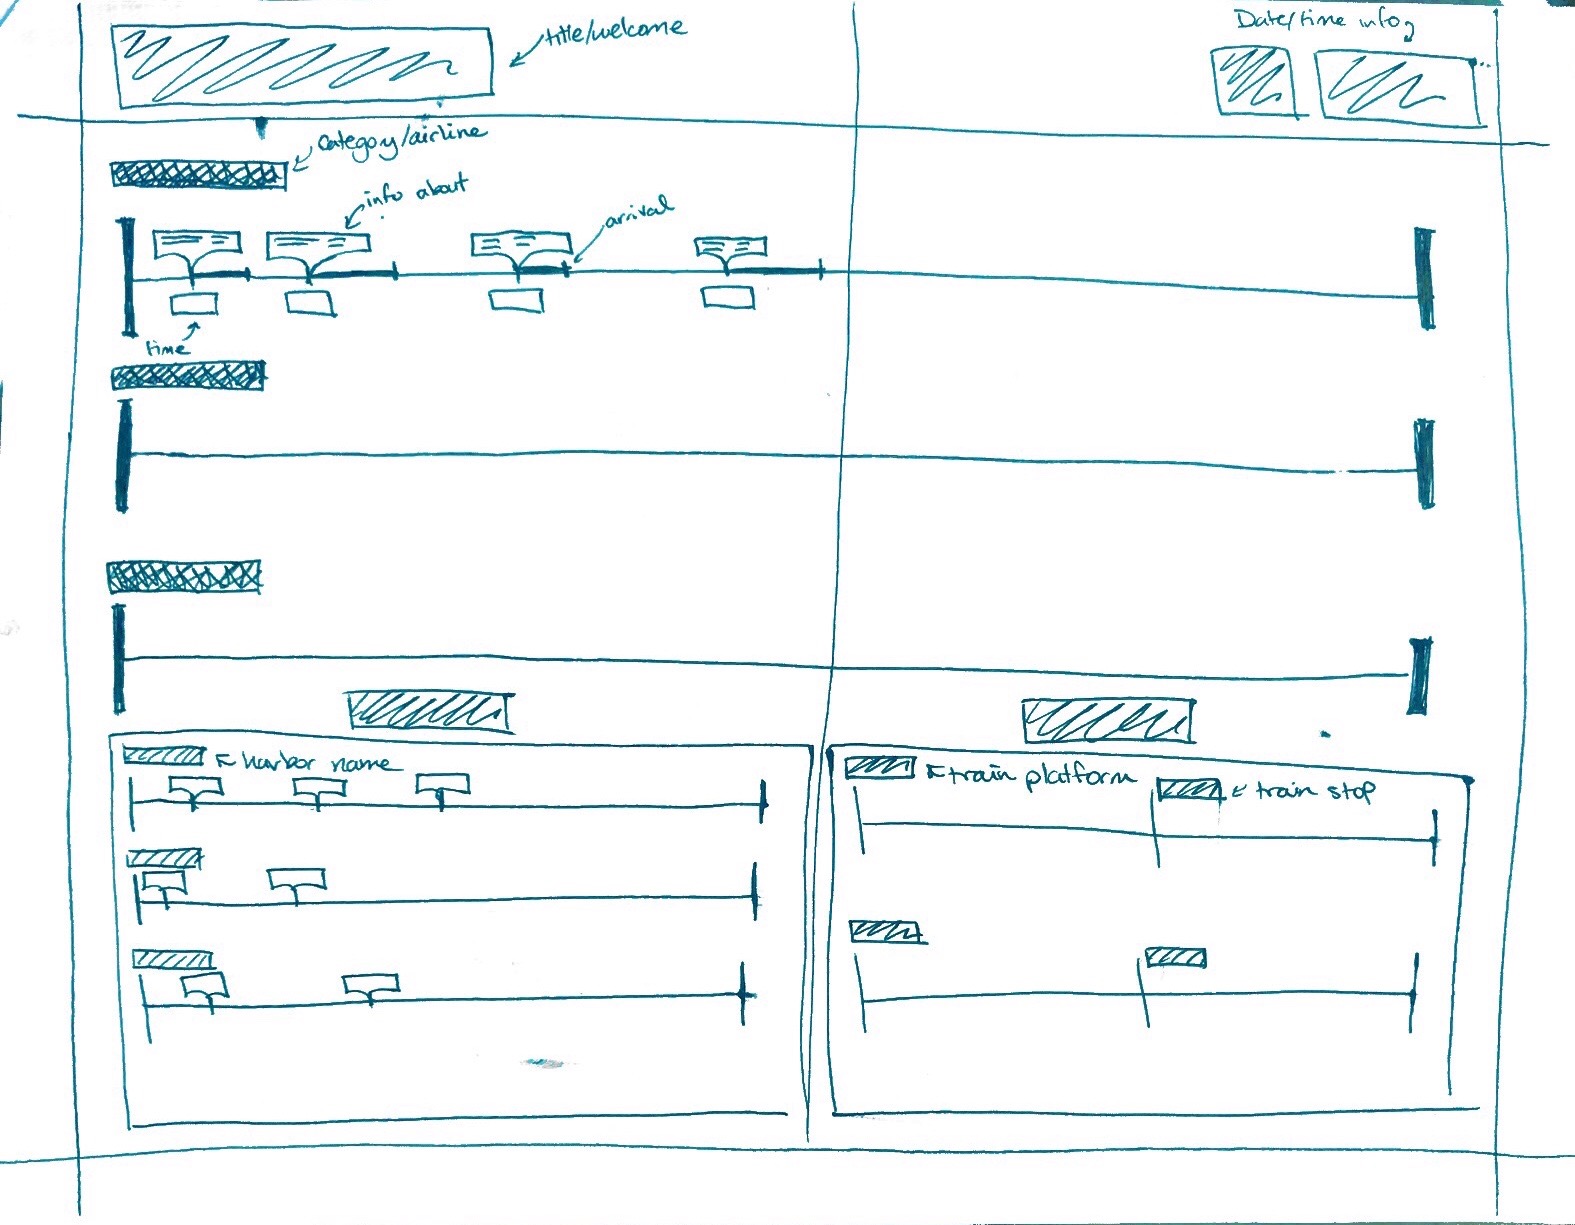 title/welcome
Date/time info
Category/airline
info about
arrival
time
harbor name
train platform
train stop